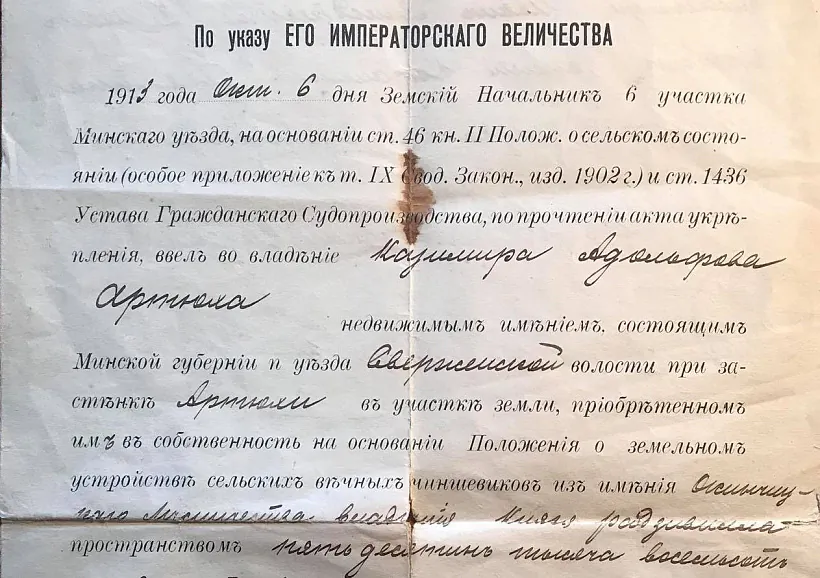 По указу ЕГО ИМПЕРАТОРСКАГО ВЕЛИЧЕСТВА
1913 года Окт. 6 дня Земскій Начальникъ 6 участка
Минскаго уѣзда, на основаніи ст. 46 кн. II Полож. о сельскомъ состо-
яніи (особое приложеніе къ т. IX Свод. Закон., изд. 1902 г.) и ст. 1436
Устава Гражданскаго Судопроизводства, по прочтеніи акта укрѣ-
пленія, ввелъ во владѣніе Казимира Адольфова
Артюха
недвижимымъ имѣніемъ, состоящимъ
Минской губерніи п уѣзда Сверженской волости при за-
стѣнкѣ Артюхи въ участкѣ земли, пріобрѣтенномъ
имъ въ собственность на основаніи Положенія о земельномъ
устройствѣ сельскихъ вѣчныхъ чиншевиковъ изъ имѣнія
Князя Радзивилла
пространствомъ пять десятинъ тысяча восемьсотъ